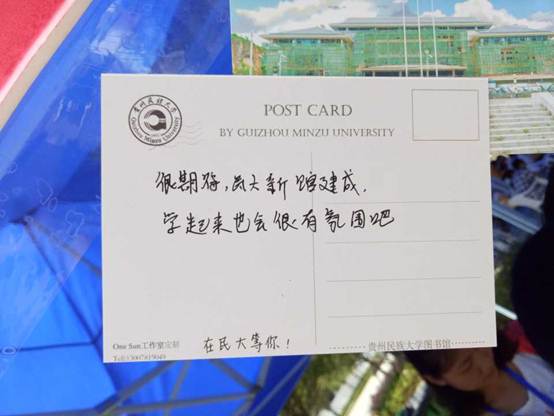 贵州民族大学
Guizhou Minzu University
POST CARD
BY GUIZHOU MINZU UNIVERSITY
很期待，民大新馆建成，
学起来也会很有氛围吧
One Sun工作室定制
在民大等你！
贵州民族大学图书馆